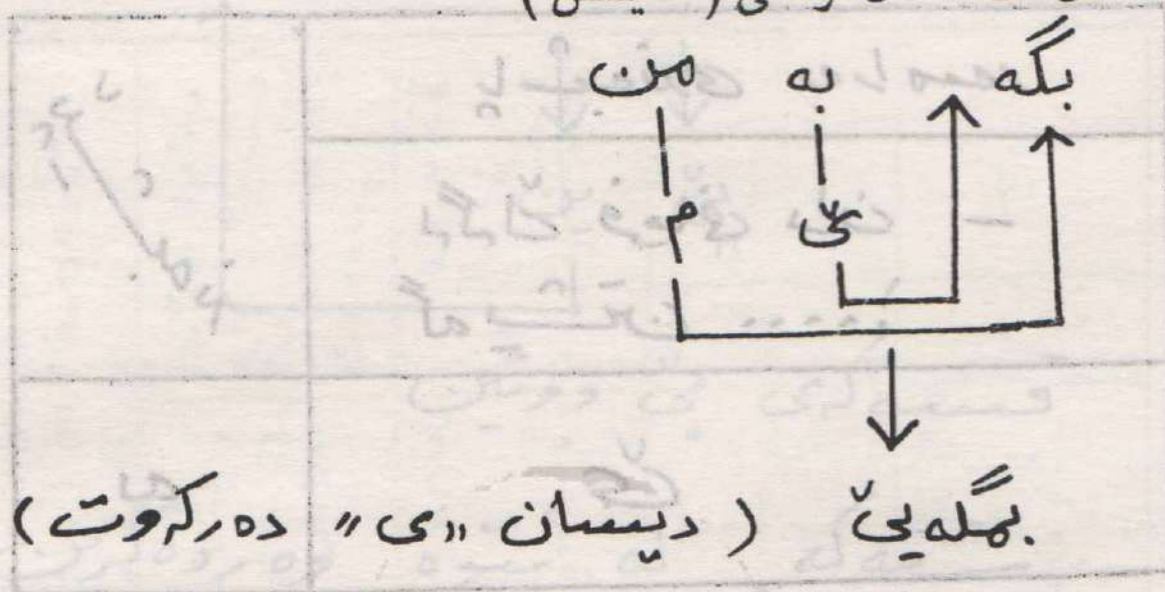 بگه به من
ێ م
بمگەیێ ( دیسان «ی» دەرکەوت )